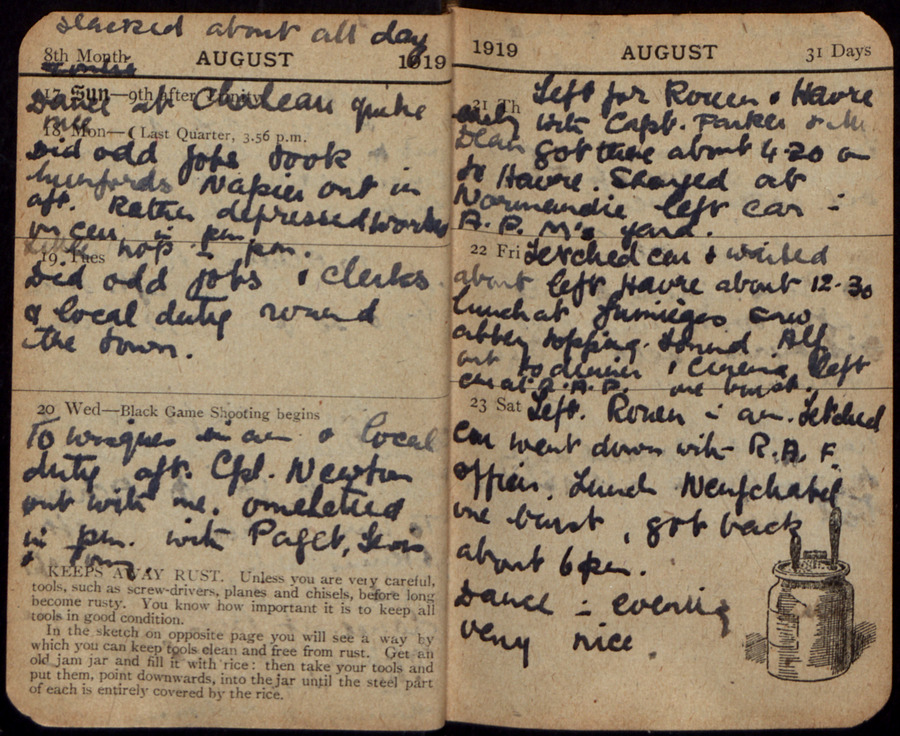 slacked about all day
8th Month AUGUST 1919
17 Sun—9th after Trinity
Dance at Chateau quite
nice
18 Mon—(Last Quarter, 3.56 p.m.
Did odd jobs took
Napier out in
aft. Rather depressed works
on car in pm
hop in pm.
19 Tues
Did odd jobs & clerks
& local duty round
the town.
20 Wed—Black Game Shooting begins
To in am & local
duty aft. Cpl. Newton
out with me. omeletted
in pm. with Paget, Lewis
& Tony.
KEEPS AWAY RUST. Unless you are very careful,
tools, such as screw-drivers, planes and chisels, before long
become rusty. You know how important it is to keep all
tools in good condition.
In the sketch on opposite page you will see a way by
which you can keep tools clean and free from rust. Get an
old jam jar and fill it with rice: then take your tools and
put them, point downwards, into the jar until the steel part
of each is entirely covered by the rice.
1919 AUGUST 31 Days
21 Th
Left for Rouen & Havre
early with Capt. Parker &
Dean got there about 4.20 on
to Havre. Stayed at
Normandie left car in
A.P.M's yard.
22 Fri Fetched car & waited
about left Havre about 12.30
lunch at Jumièges saw
abbey topping. Found
out to dinner & Cinema, left
car at R.A.P. one burst.
23 Sat Left Rouen in am. Fetched
car went down with R.A.F.
officer. Lunch Neufchatel
one burst, got back
about 6 pm.
Dance in evening
very nice.